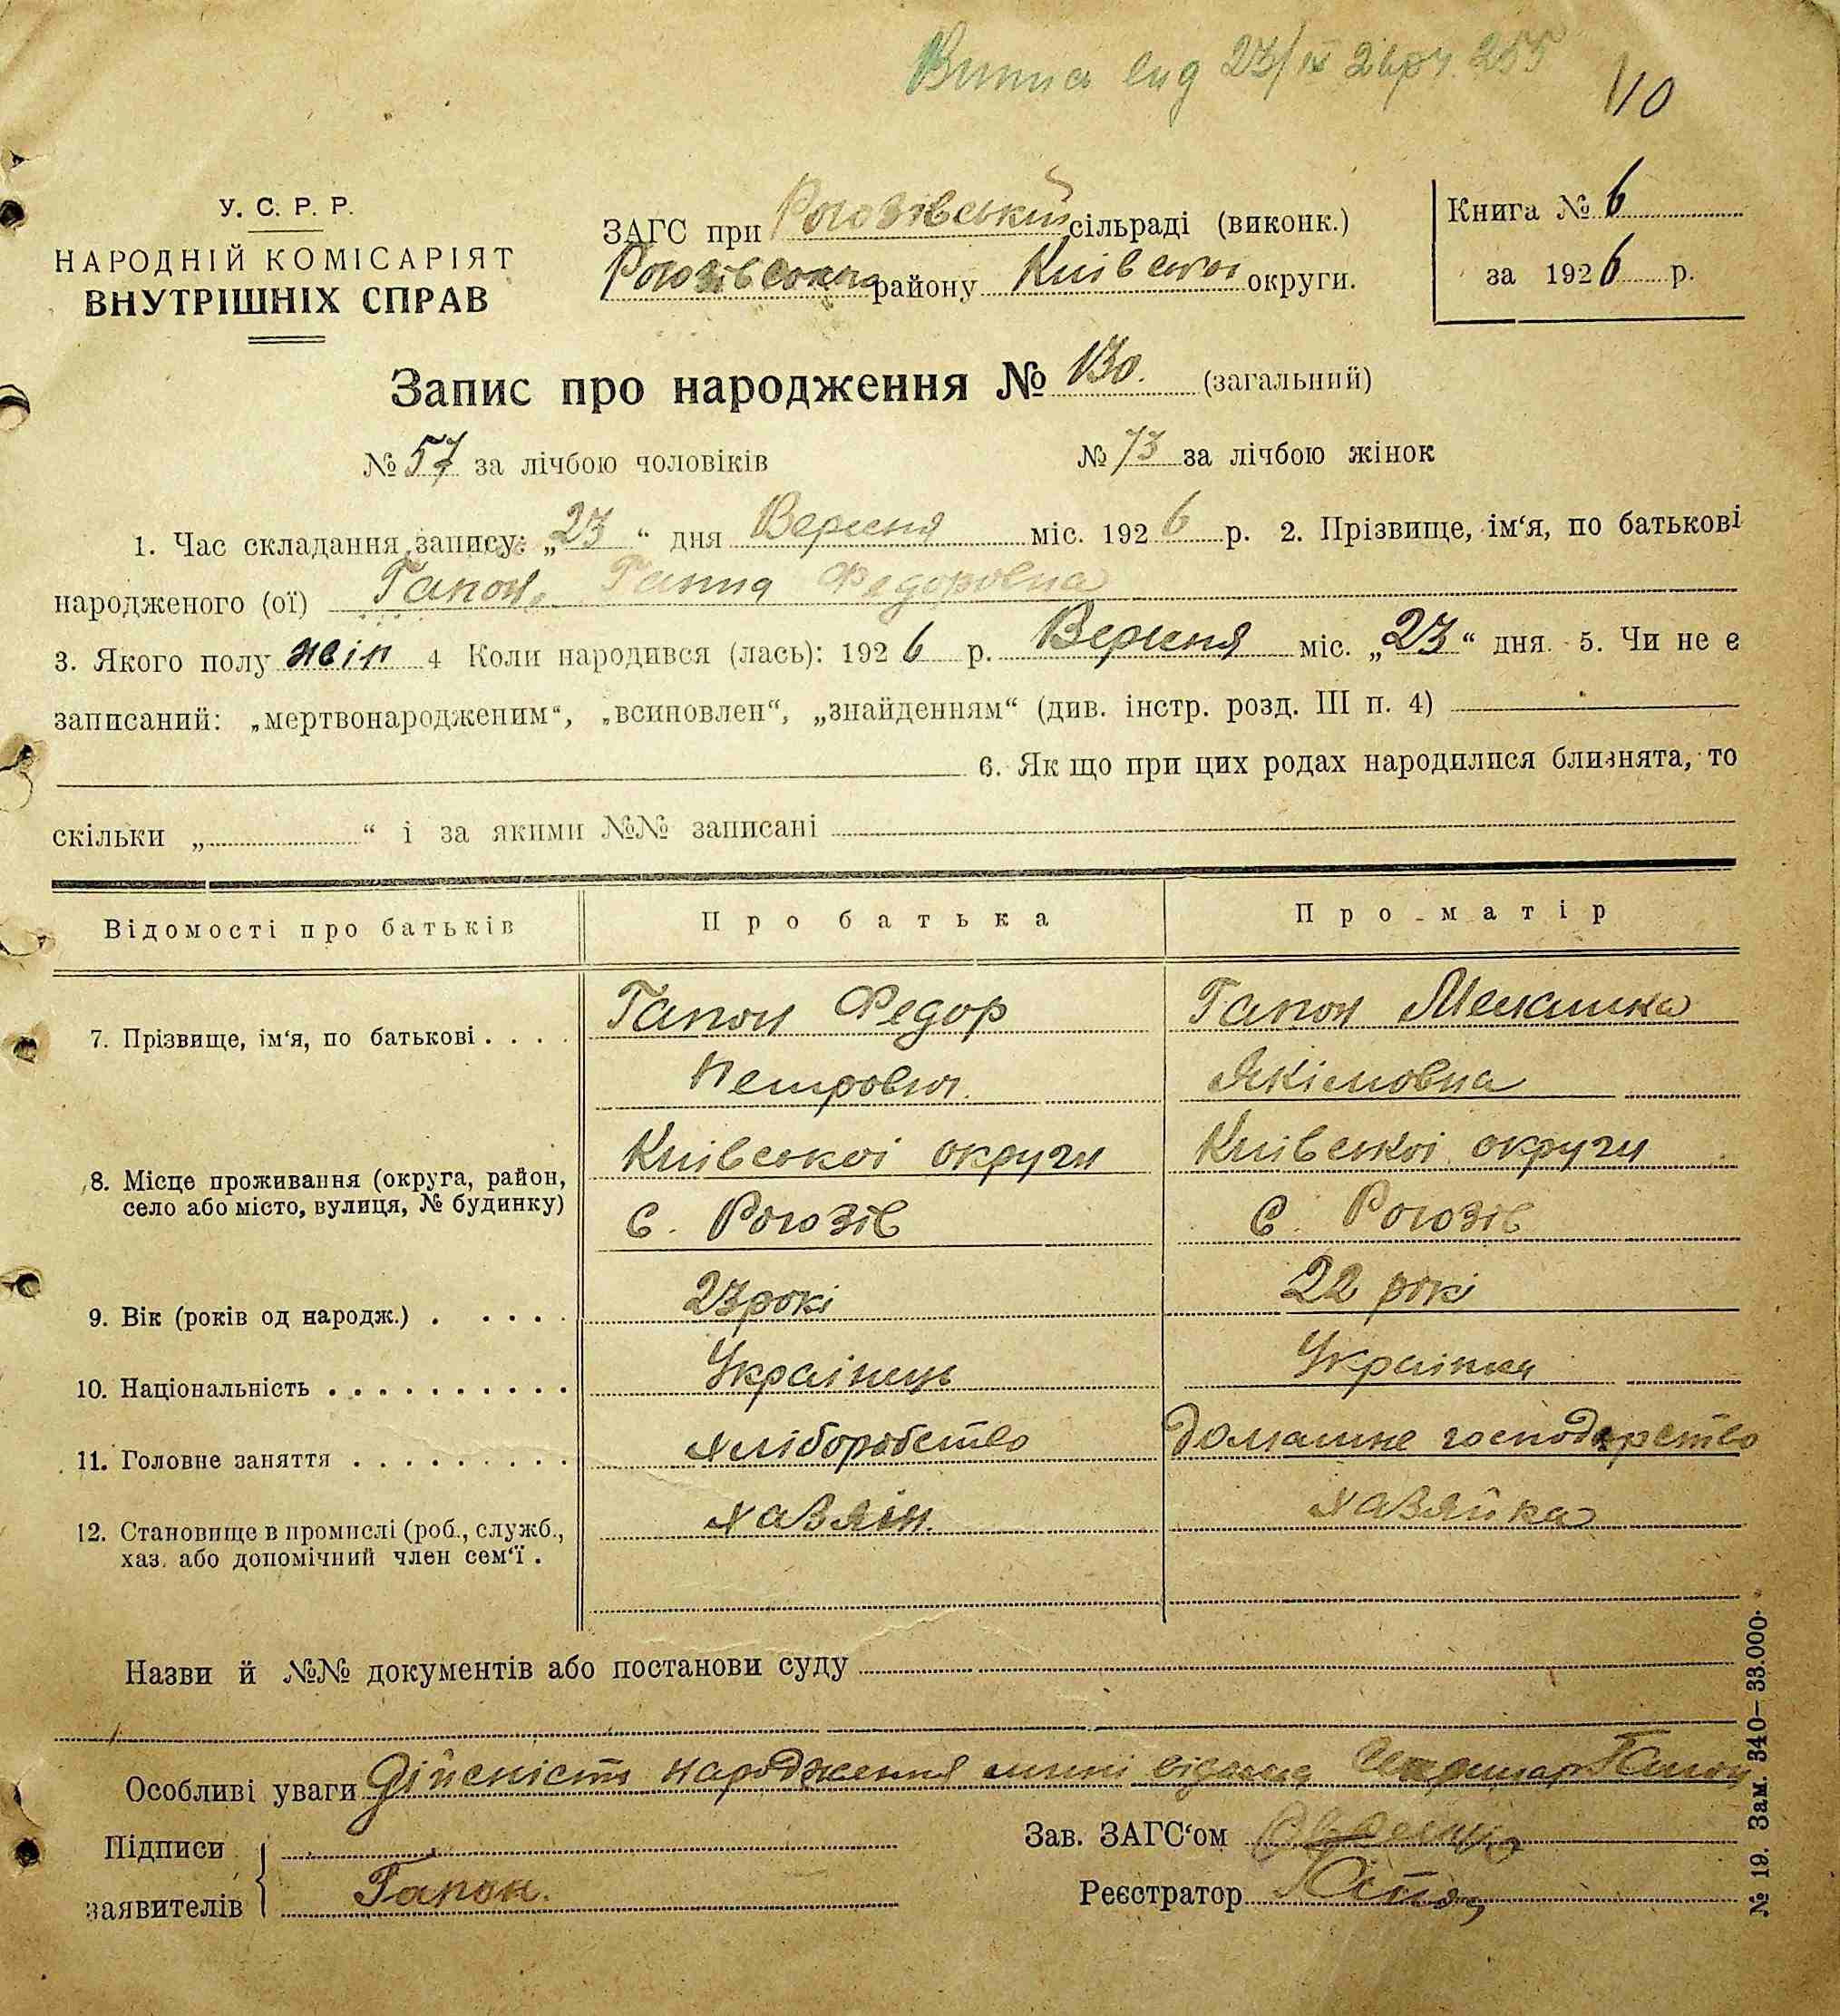 23/IX 255
110
У. С. Р. Р.
НАРОДНІЙ КОМІСАРІЯТ
ВНУТРІШНІХ СПРАВ
ЗАГС при Рогозівський сільраді (виконк.)
Рогозівського району Київської округи.
Книга № 6
за 1926 р.
Запис про народження № 130. (загальний)
№ 57 за лічбою чоловіків № 73 за лічбою жінок
1. Час складання запису: „23“ дня Вересня міс. 1926 р. 2. Прізвище, ім‘я, по батькові
народженого (ої) Гапон, Ганна Федоровна
3. Якого полу жін 4 Коли народився (лась): 1926 р. Вересня міс. „23“ дня. 5. Чи не є
записаний: „мертвонародженим“, „всиновлен“, „знайденням“ (див. інстр. розд. III п. 4)
6. Як що при цих родах народилися близнята, то
скільки „ “ і за якими №№ записані
Відомості про батьків Про батька Про матір
7. Прізвище, ім‘я, по батькові . . . . Гапон Федор Гапон Мелашка
Петрович. Якімовна
8. Місце проживання (округа, район, Київської округи Київської округи
село або місто, вулиця, № будинку) с. Рогозів с. Рогозів
9. Вік (років од народж.) . . . . . 23 рокі 22 рокі
10. Національність . . . . . . . . . . Українець Українка
11. Головне заняття . . . . . . . . . хліборобство домашне господарство
12. Становище в промислі (роб., служб., хазяін. хазяйка
хаз. або допомічний член сем‘ї .
Назви й №№ документів або постанови суду
Особливі уваги Дійсність народження мині відома Гапон
Підписи
заявителів Гапон.
Зав. ЗАГС‘ом
Реєстратор
№ 19. Зам. 340—33.000.